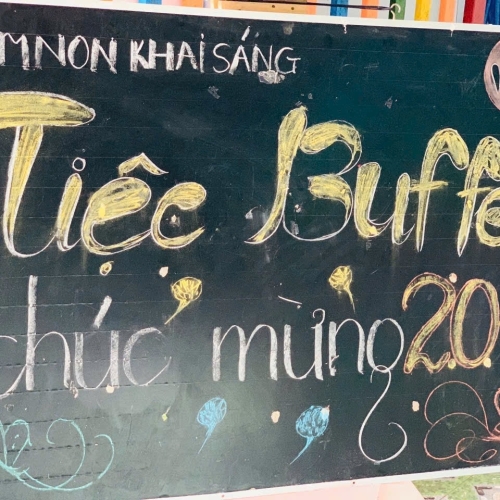 MNON KHAI SÁNG
Tiệc Buffe
chúc mừng 20.